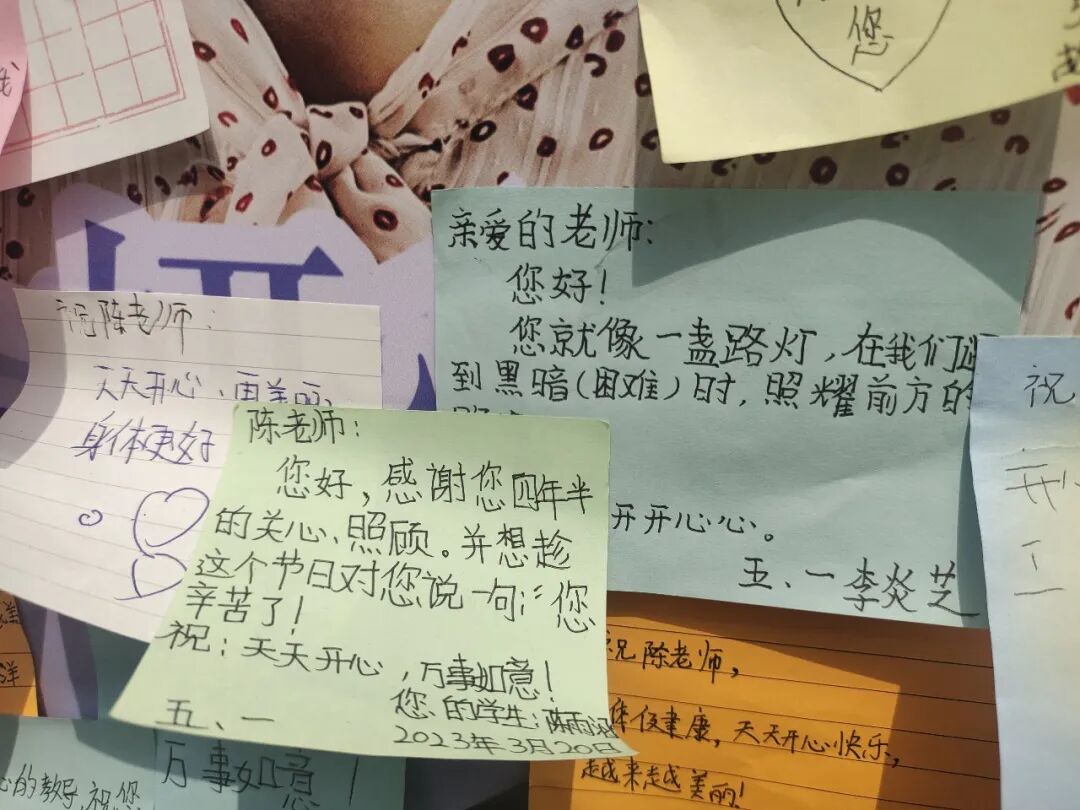 您
亲爱的老师:
您好!
您就像一盏路灯,在我们
到黑暗(困难)时,照耀前方的
开开心心。
五、一 李炎芝
祝陈老师:
天天开心、更美丽、
身体更好
陈老师:
您好,感谢您四年半
的关心、照顾。并想趁
这个节日对您说一句:“您
辛苦了!
祝:天天开心,万事如意!
您的学生:陈雨
五、一
2023年3月20日
祝
开
祝陈老师,
健康,天天开心快乐,
越来越美丽!
心的教导,祝您
万事如意!